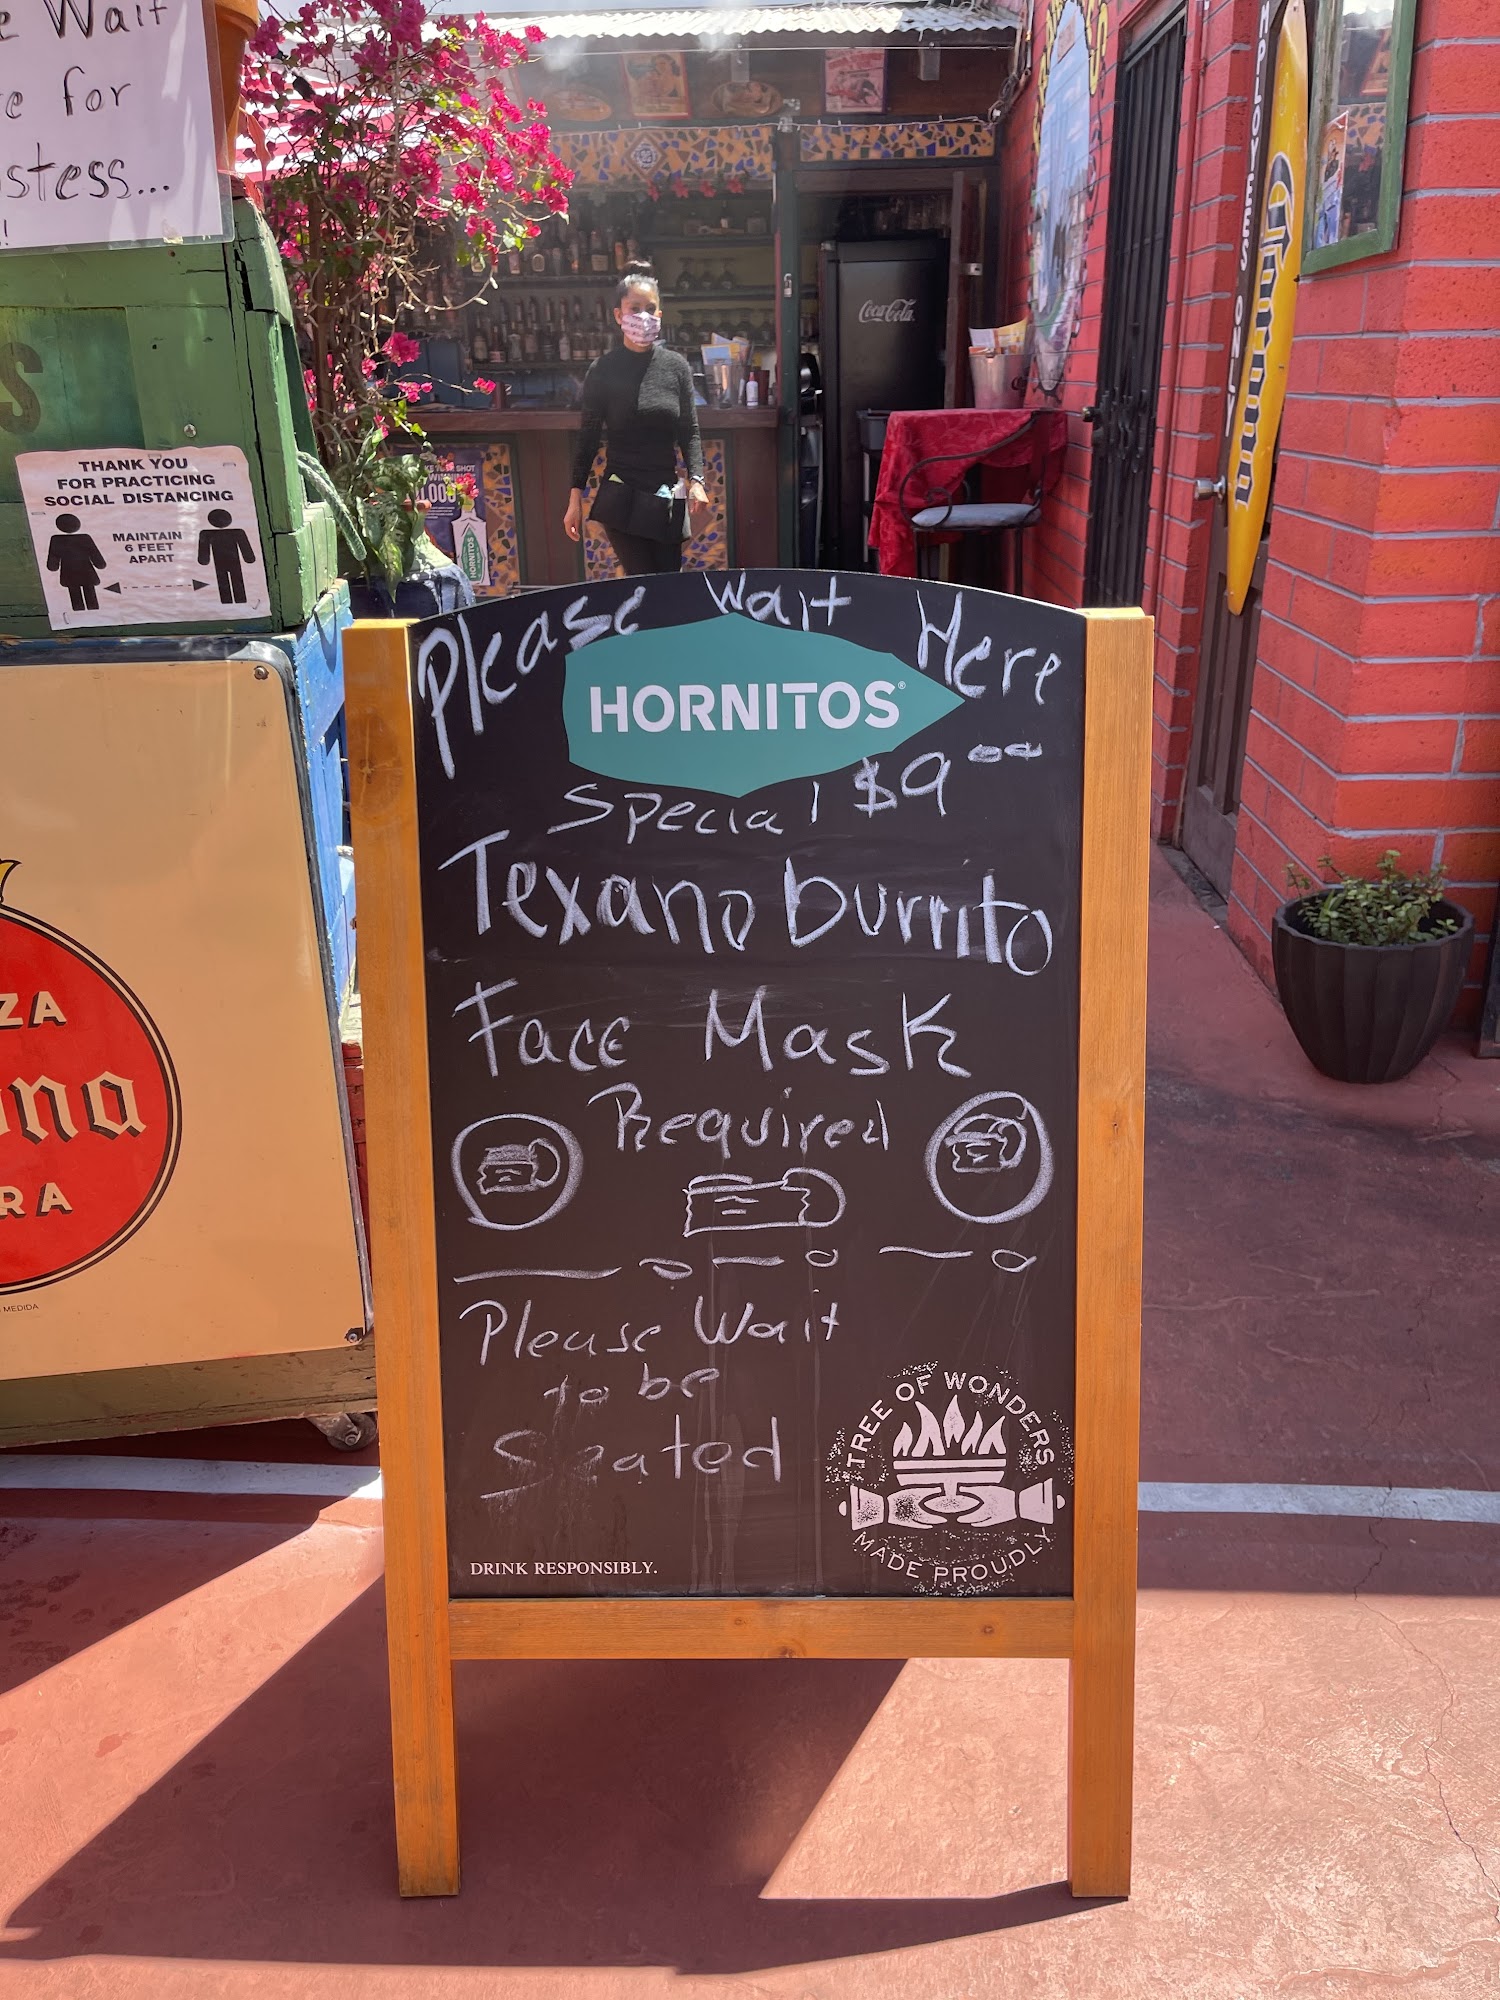 Wait
for
THANK YOU
FOR PRACTICING
SOCIAL DISTANCING
MAINTAIN
6 FEET
APART
Coca-Cola
HORNITOS
Please Wait Here
HORNITOS®
Special $9.00
Texano burrito
Face Mask
Required
Please Wait
to be
Seated
TREE OF WONDERS
MADE PROUDLY
DRINK RESPONSIBLY.
MEDIDA